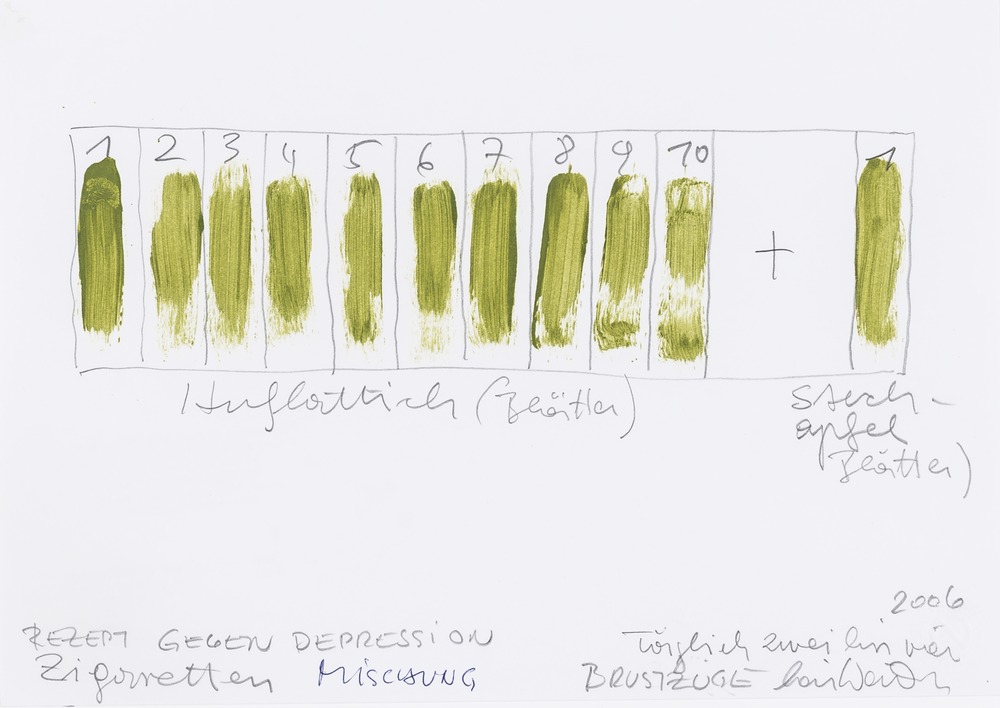 1 2 3 4 5 6 7 8 9 10 + 1
Huflattich (Blätter)
Stech-
apfel
Blätter)
2006
REZEPT GEGEN DEPRESSION
Zigaretten MISCHUNG
Täglich zwei bis vier
BRUSTZÜGE